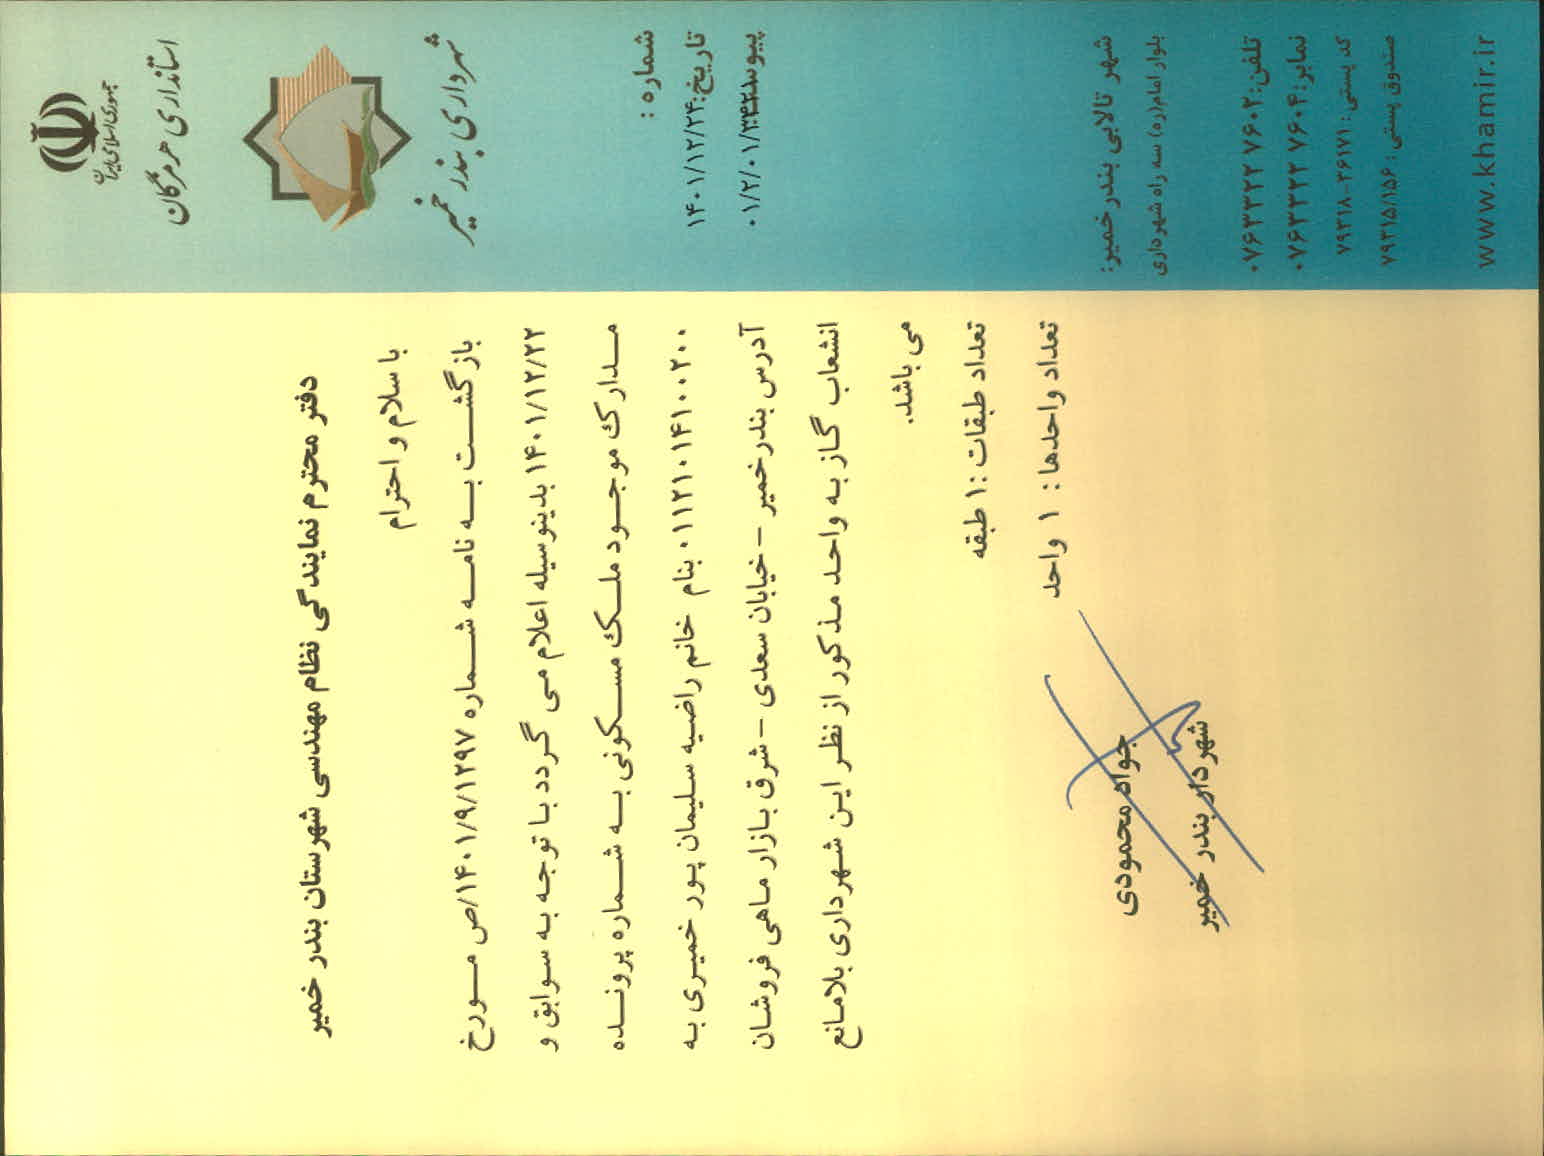 جمهوری اسلامی ایران
استانداری هرمزگان
شهرداری بندر خمیر
شماره :
تاریخ: ۱۴۰۱/۱۲/۲۴
دفتر محترم نمایندگی نظام مهندسی شهرستان بندر خمیر
با سلام و احترام
بازگشت به نامه شماره ۱۴۰۱/۹/۱۲۹۷/ص مورخ
۱۴۰۱/۱۲/۲۲ بدینوسیله اعلام می گردد با توجه به سوابق و
مدارک موجود ملک مسکونی به شماره پرونده
۰۱۱۲۱۰۱۴۱۰۰۲۰۰ بنام خانم راضیه سلیمان پور خمیری به
آدرس بندرخمیر – خیابان سعدی – شرق بازار ماهی فروشان
انشعاب گاز به واحد مذکور از نظر این شهرداری بلامانع
می باشد.
تعداد طبقات :۱ طبقه
تعداد واحدها : ۱ واحد
جواد محمودی
شهردار بندر خمیر
شهر تالابی بندرخمیر:
بلوار امام(ره) سه راه شهرداری
تلفن: ۰۷۶۳۳۲۲ ۷۶۰۲
نمابر: ۰۷۶۳۳۲۲ ۷۶۰۴
کد پستی: ۷۹۳۱۸-۳۶۱۷۱
صندوق پستی : ۷۹۳۱۵/۱۵۶
www.khamir.ir